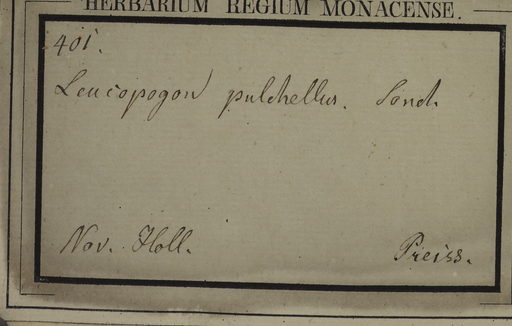 HERBARIUM REGIUM MONACENSE.
401.
Leucopogon pulchellus. Sond.
Nov. Holl. Preiss.